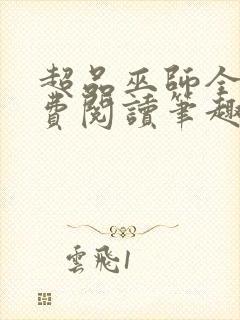 超品巫師全
費閱讀筆趣
雲飛1